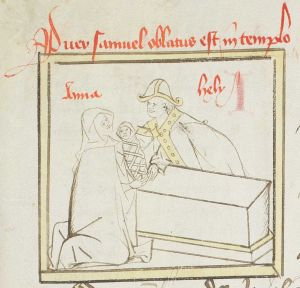 Puer samuel oblatus est in templo
Anna hely